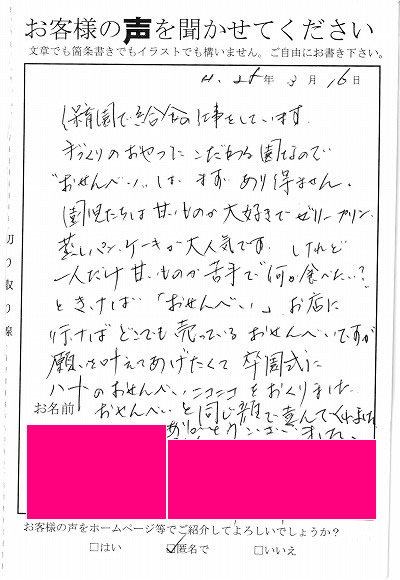 お客様の声を聞かせてください
文章でも箇条書きでもイラストでも構いません。ご自由にお書き下さい。
H. 28年 3月 16日
保育園で給食の仕事をしています。
手づくりのおやつにこだわる園なので
"おせんべい"は まず あり得ません。
園児たちは甘いものが大好きでゼリー・プリン、
蒸しパン、ケーキが大人気です。 けれど
一人だけ甘いものが苦手で「何が食べたい?」
ときけば 「おせんべい」 お店に
行けばどこでも売っているおせんべいですが
願いを叶えてあげたくて 卒園式に
ハートのおせんべい ニコニコ をおくりました
おせんべいと同じ顔で喜んでくれました
ありがとうございました。
お名前
切り取り線
お客様の声をホームページ等でご紹介してよろしいでしょうか?
□はい ☑匿名で □いいえ